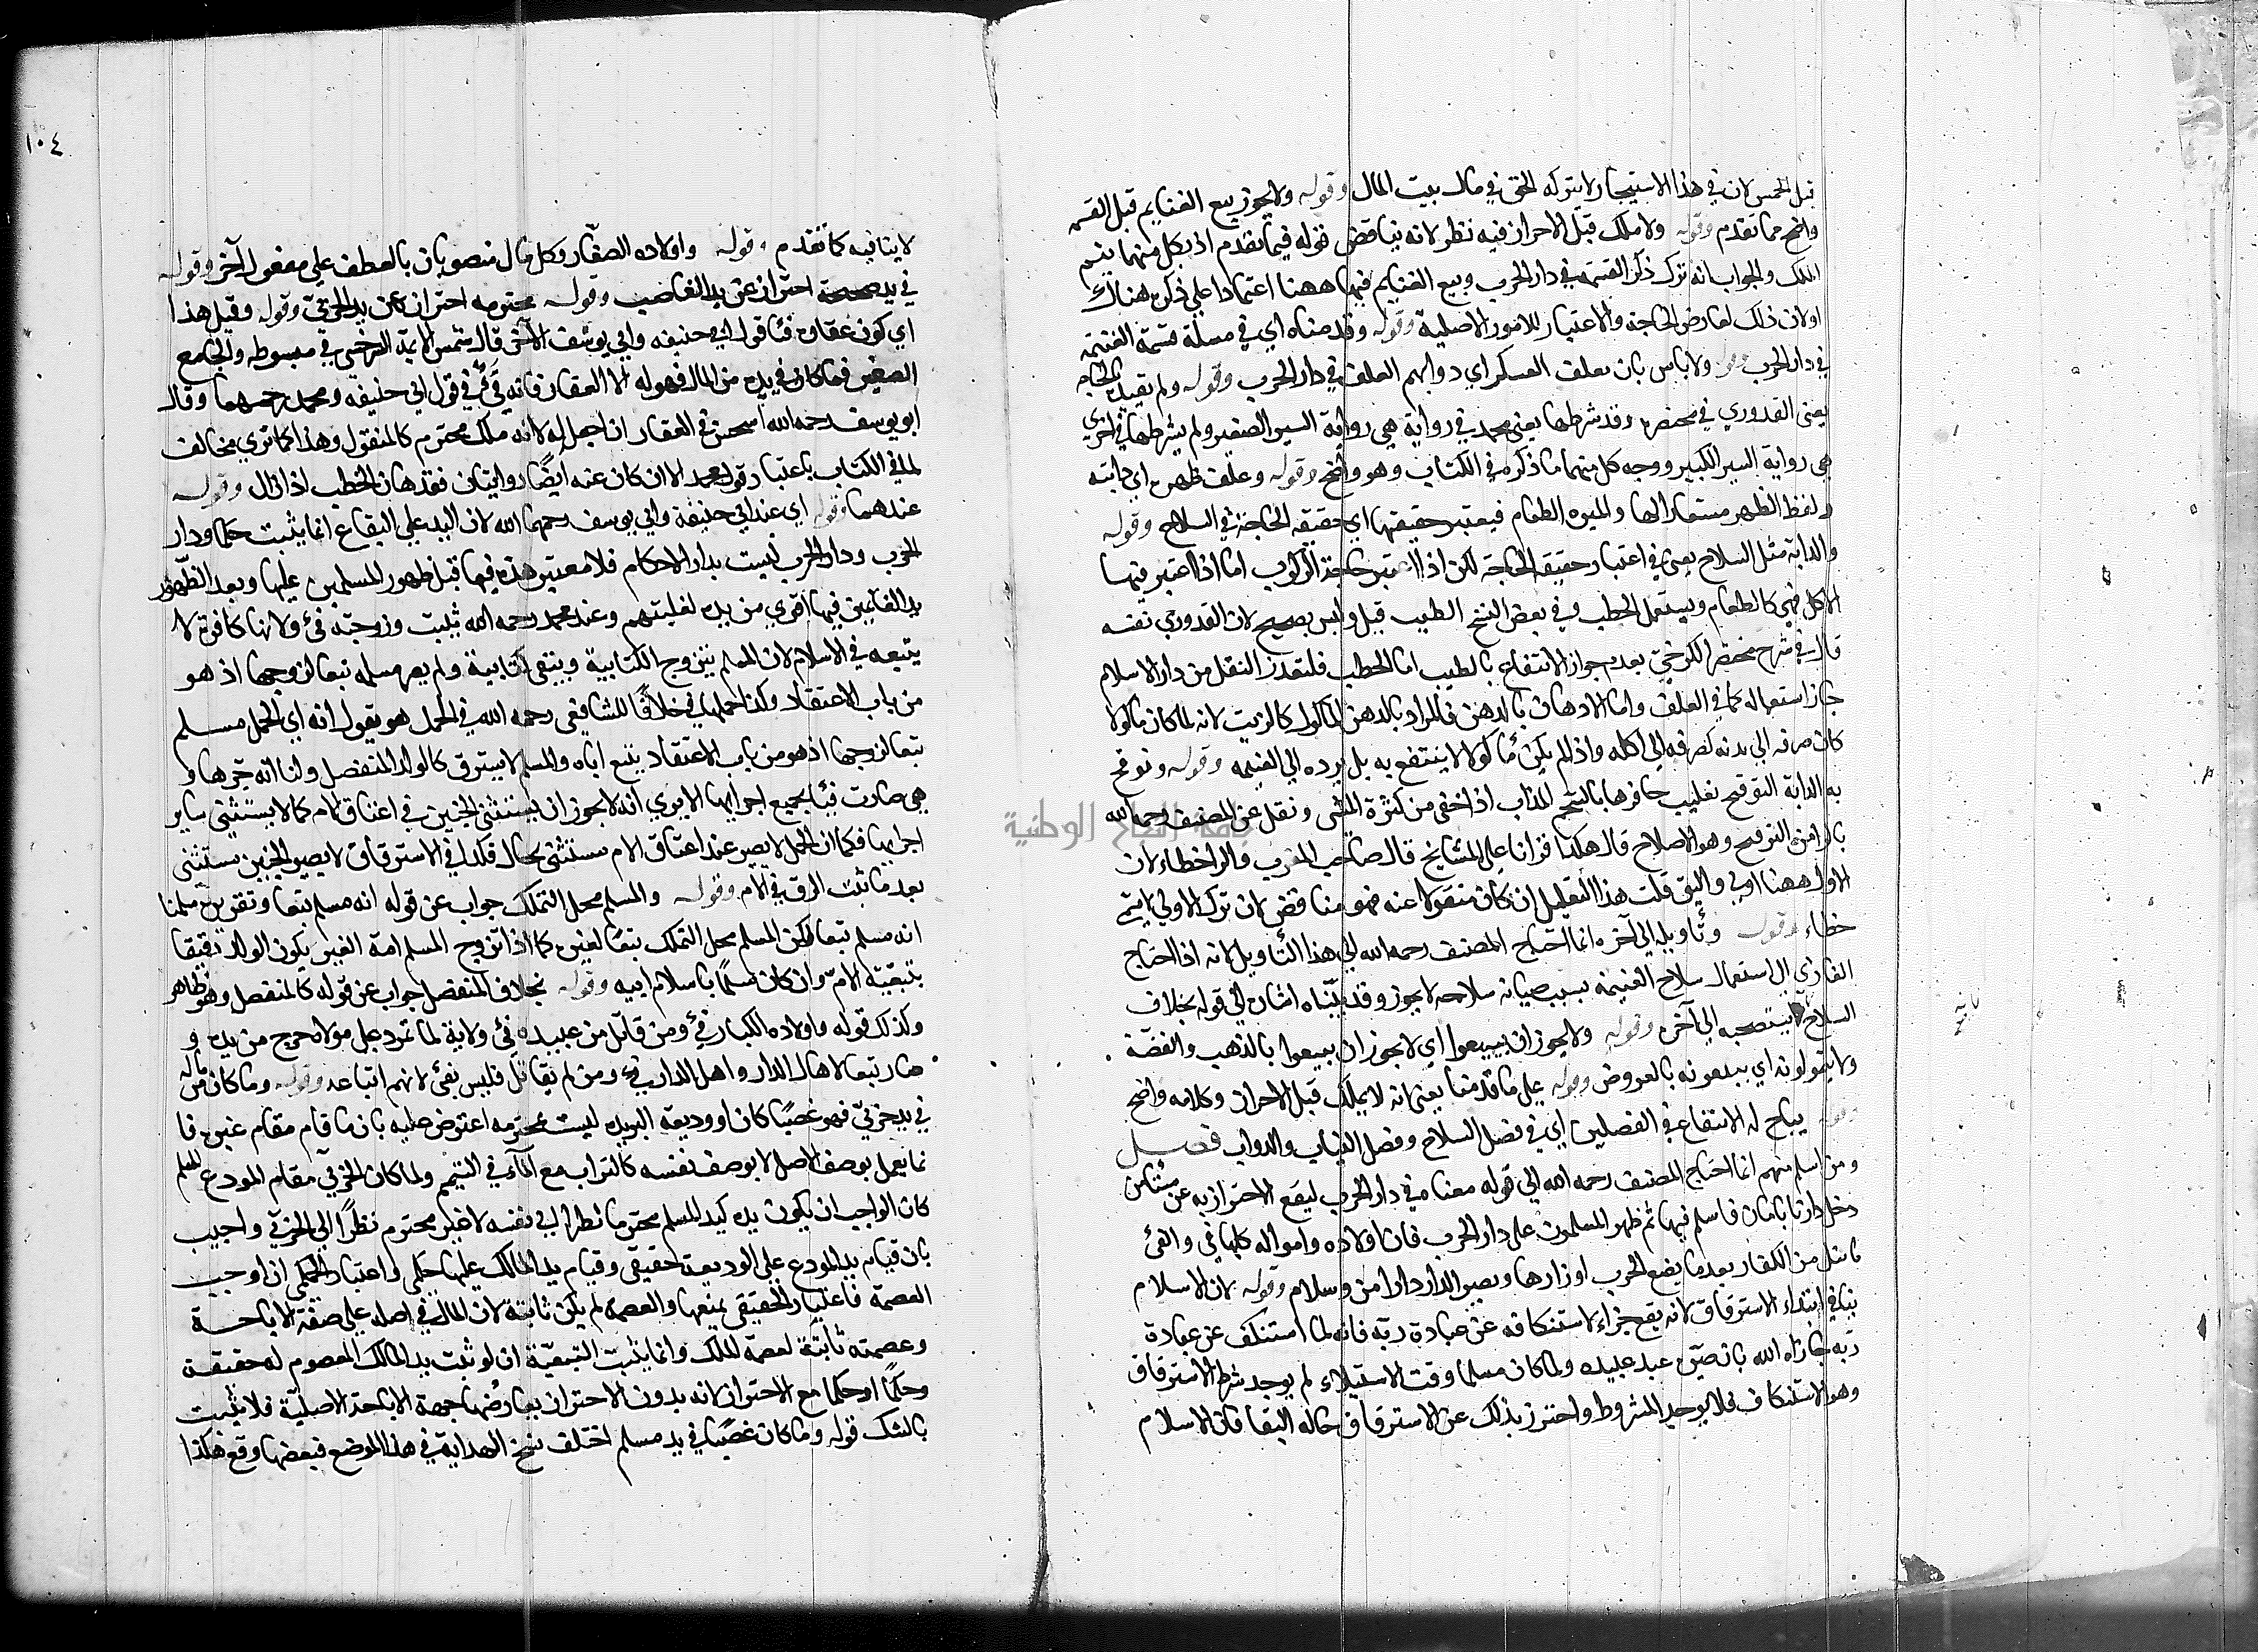 قبل الخمس لان في هذا الاستيجار لا شركه الحق في مال بيت المال وقوله ولا يجوز بيع الغنايم قبل القسمه
واضح مما تقدم وقوله ولا ملك قبل الاحراز فيه نظر لانه يناقض قوله فيما تقدم اذ بكل منهما يتم
الملك والجواب انه ترك ذكر القسمه في دار الحرب وبيع الغنايم فيها ههنا اعتمادا على ذكره هناك
او لان ذلك لعارض الحاجة والاعتبار للامور الاصلية وقوله وقد مناه اي في مسلة قسمة الغنيمه
في دار الحرب قوله ولا باس بان يعلف العسكر اي دوابهم العلف في دار الحرب وقوله ولم يقيده بالحاجه
يعني القدوري في مختصره وقد شرطها يعني محمد في رواية هي رواية السير الصغير ولم يشرطها في اخرى
هي رواية السير الكبير ووجه كل منهما ما ذكره في الكتاب وهو واضح وقوله وعلف ظهره اي دابته
ولفظ الظهر مستعار لها والميره الطعام فيعتبر حقيقتها اي حقيقة الحاجة في السلاح وقوله
والدابة مثل السلاح يعني في اعتبار حقيقة الحاجة لكن اذا اعتبر حاجة الركوب اما اذا اعتبر فيها
الاكل فهي كالطعام ويستعمل الحطب وفي بعض النسخ الطيب قيل وليس بصحيح لان القدوري نفسه
قال في شرح مختصر الكرخي بعدم جواز الانتفاع بالطيب اما الحطب فلتعذر النقل من دار الاسلام
جاز استعماله كما في العلف واما الادهان بالدهن فالمراد بالدهن الماكول كالزيت لانه لما كان ماكولا
كان صرفه الى بدنه كصرفه الى اكله واذا لم يكن مأكولا لا ينتفع به بل يرده الى الغنيمه وقوله وتوقح
به الدابة التوقيح تغليب حافرها بالشحم المذاب اذا خفى من كثرة المشى ونقل عن المصنف رحمه الله
بالرا من الترقيح وهو الاصلاح قال هكذا قرانا على المشايخ قال صاحب المغرب والرا خطاء لان
الاول ههنا اولى واليق قلت هذا التعليل ان كان منقولا عنه فهو مناقض لان ترك الاولى لا يسمى
خطاء وقوله وتأويله الى آخره انما احتاج المصنف رحمه الله الى هذا التأويل لانه اذا احتاج
الغازي الى استعمال سلاح الغنيمه بسبب صيانه سلاحه لا يجوز وقد بيّناه اشاره الى قوله بخلاف
السلاح يستصحبه الى آخره وقوله ولا يجوز ان يبيعوا اي لا يجوز ان يبيعوا بالذهب والفضّة
ولا يتمولونه اي يبيعونه بالعروض وقوله على ما قدمنا يعني انه لا يملك قبل الاحراز وكلامه واضح
وقوله يباح له الانتفاع في الفصلين اي في فصل السلاح وفصل الثياب والدواب فصل
ومن اسلم منهم انما احتاج المصنف رحمه الله الى قوله معناه في دار الحرب ليقع الاحتراز به عن مستأمن
دخل دارنا بامان فاسلم فيها ثم ظهر المسلمون على دار الحرب فان اولاده وامواله كلها فئ والفئ
ما ينال من الكفار بعدما يضع الحرب اوزارها ويصير الدار دار امن وسلام وقوله لان الاسلام
ينافي ابتداء الاسترقاق لانه يقع جزاء لاستنكافه عن عبادة ربه فانه لما استنكف عن عبادة
ربه جازاه الله بان صيّره عبد عبيده ولما كان مسلما وقت الاستيلاء لم يوجد شرط الاسترقاق
وهو الاستنكاف فلا يوجد المشروط واحترز بذلك عن الاسترقاق حاله البقا فان الاسلام
١٠٤
لا ينافيه كما تقدم وقوله واولاده الصغّار وكل مال منصوبان بالعطف على مفعول آخر وقوله
في يد صحيحة احتراز عن يد الغاصب وقوله محترمه احتراز عن يد الحربيّ وقوله وقيل هذا
اي كون عقاره فئا قول ابي حنيفه وابي يوسف الآخر قال شمس الايمة السرخسي في مبسوطه والجامع
الصغير فما كان في يده من المال فهو له الا العقار فانه فَئٌ في قول ابي حنيفه ومحمد رحمهما وقال
ابو يوسف رحمه الله استحسن في العقار ان اجعل له لانه ملك محترم كالمنقول وهذا كما ترى مخالف
لما في الكتاب باعتبار قول محمد الا ان كان عنه ايضًا روايتان فقد هان الخطب اذا زال وقوله
عندهما وقوله اي عند ابي حنيفة وابي يوسف رحمهما الله لان اليد على البقاع انما يثبت حكما ودار
الحرب ودار الحرب ليست بدار الاحكام فلا معتبر هذه فيها قبل ظهور المسلمين عليها وبعد الظّهور
يد الغانمين فيها اقوى من يده لغلبتهم وعند محمد رحمه الله يثبت وزوجته فئ ولانها كافرة لا
يتبعه في الاسلام لان المسلم يتزوج الكتابية ويبقى كتابية ولم يصر مسلمه تبعا لزوجها اذ هو
من باب الاعتقاد وكذا حملها في خلافًا للشافعي رحمه الله في الحمل هو يقول انه اي الحمل مسلم
تبعا لزوجها اذ هو من باب الاعتقاد يتبع اباه والمسلم لا يسترق كالولد المنفصل ولنا انه جزوها و
هي صارت فئًا بجميع اجزايها الا يرى انه لا يجوز ان يستثنى الجنين في اعتاق الام كما لا يستثنى ساير
اجزايها فكما ان الحمل لا يصير عند اعتاق الام مستثنى بحال فكذا في الاسترقاق لا يصير الجنين مستثنى
بعد ما ثبت الرق في الام وقوله والمسلم محل التملك جواب عن قوله انه مسلم تبعا وتقريره سلمنا
انه مسلم تبعا لكن المسلم محل التملك تبعًا لغيره كما اذا تزوج المسلم امة الغير يكون الولد رقيقا
بتبعيّة الامّ وان كان مسلمًا باسلام ابيه وقوله بخلاف المنفصل جواب عن قوله كالمنفصل وهو ظاهر
وكذلك قوله واولاده الكبار فئ ومن قاتل من عبيده فئ ولاية لما تمرد على مولاه خرج من يده و
صار تبعا لاهل الدار واهل الدار فئ ومن لم يقاتل فليس بفئ لانهم اتباعه وقوله وما كان من ماله
في يد حربيّ فهو غصبًا كان او وديعة اليد ليست محترمه اعترض عليه بان ما قام مقام غيره فا
نما يعمل بوصف الاصل لا بوصف نفسه كالتراب مع المآء في التيمم ولما كان الحربيّ مقام المودع المسلم
كان الواجب ان يكون يده كيد المسلم محترما نظرا الى نفسه لا غير محترم نظرًا الى الحربيّ واجيب
بان قيام يد المودع على الوديعه حقيقي وقيام يد المالك عليها حكمي واعتبار الحكمي ان اوجب
العصمة فاعتبار الحقيقي يمنعها والعصمه لم يكن ثابتة لان المال في اصله على صفة الاباحة
وعصمته ثابتة لعصمة المالك وانما يثبت التبعيّة ان لو ثبت يد المالك المعصوم له حقيقة
وحكمًا او حكما مع الاحتراز لانه بدون الاحتراز يعارضُها جهة الاباحة الاصليّة فلا يثبت
بالشك قوله وما كان غصبًا في يد مسلم اختلف نسخ الهداية في هذا الموضع فبعضها وقع هكذا
جامعة النجاح الوطنية